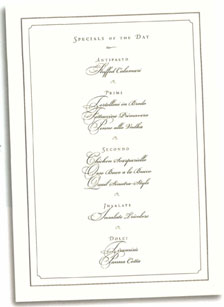 Specials of the Day
Antipasto
Stuffed Calamari
Primi
Tortellini in Brodo
Fettuccine Primavera
Penne alla Vodka
Secondo
Chicken Scarpariello
Osso Buco a la Bianco
Quail Sinatra Style
Insalate
Insalate Tricolore
Dolci
Tiramisu
Panna Cotta